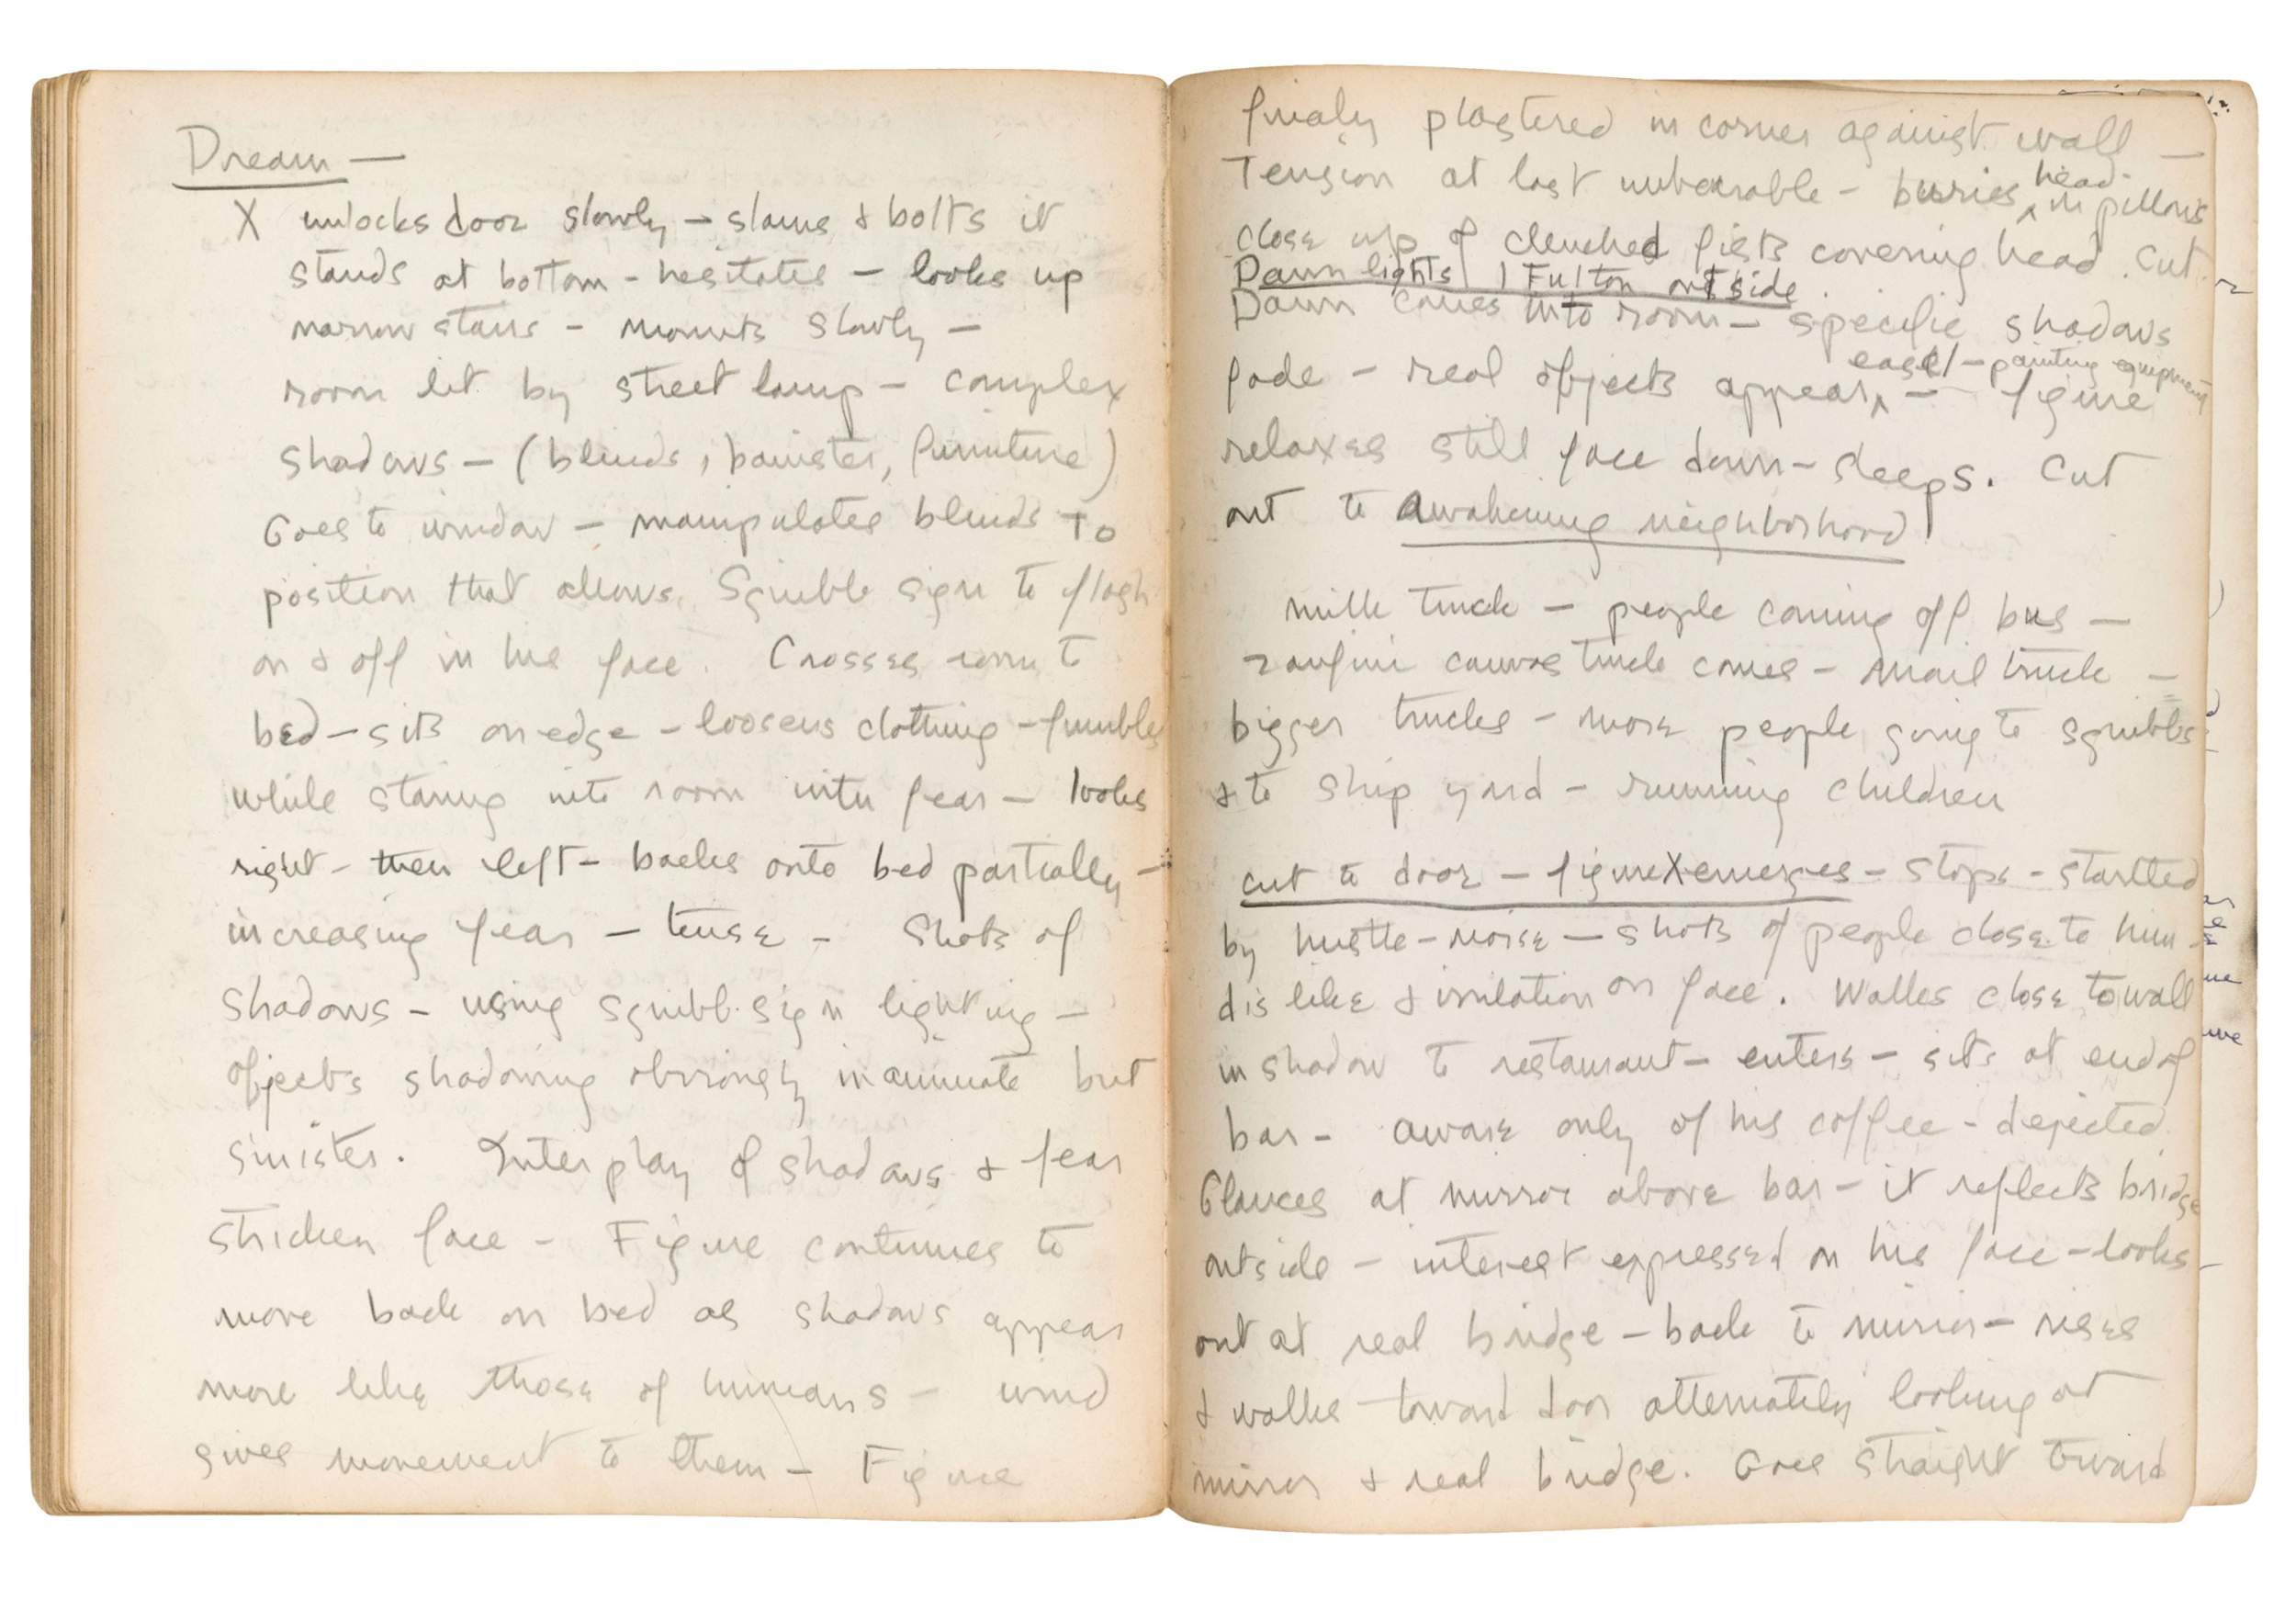 Dream —
X unlocks door slowly – slams & bolts it
stands at bottom – hesitates – looks up
narrow stairs – mounts slowly –
room lit by street lamp – complex
shadows – (blinds, banister, furniture)
Goes to window – manipulates blinds to
position that allows Squibb sign to flash
on & off in his face. Crosses room to
bed – sits on edge – loosens clothing – fumbles
while staring into room with fear – looks
right – then left – backs onto bed partially –
increasing fear – tense – Shots of
shadows – using squibb sign lighting –
objects shadowing obviously inanimate but
sinister. Interplay of shadows & fear
stricken face – Figure continues to
move back on bed as shadows appear
more like those of humans – wind
gives movement to them – Figure
finaly plastered in corner against wall –
Tension at last unbearable – buries head in pillows
close up of clenched fists covering head. Cut.
Dawn lights 1 Fulton outside.
Dawn comes into room – specific shadows
fade – real objects appear, easel – painting equipment – figure
relaxes still face down – sleeps. Cut
out to Awakening neighborhood.
milk truck – people coming off bus –
canvas truck comes – mail truck –
bigger trucks – more people going to squibbs
& to ship yard – running children
cut to door – figure X emerges – stops – startled
by hustle – noise – shots of people close to him –
dislike & irritation on face. Walks close to wall
in shadow to restaurant – enters – sits at end of
bar – aware only of his coffee – dejected.
Glances at mirror above bar – it reflects bridge
outside – interest expressed on his face – looks –
out at real bridge – back to mirror – rises
& walks toward door alternately looking at
mirror & real bridge. Goes straight toward